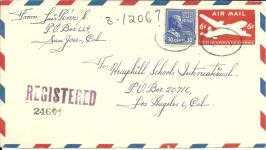 From: Luis Pérez S.
P.O Box 669,
San Jose, Cal
3-12067
AIR MAIL
6¢ 6¢
10 CENTS 10
To Hemphill Schools International,
P.O Box 20716,
Los Angeles 6, Cal.
REGISTERED
24601